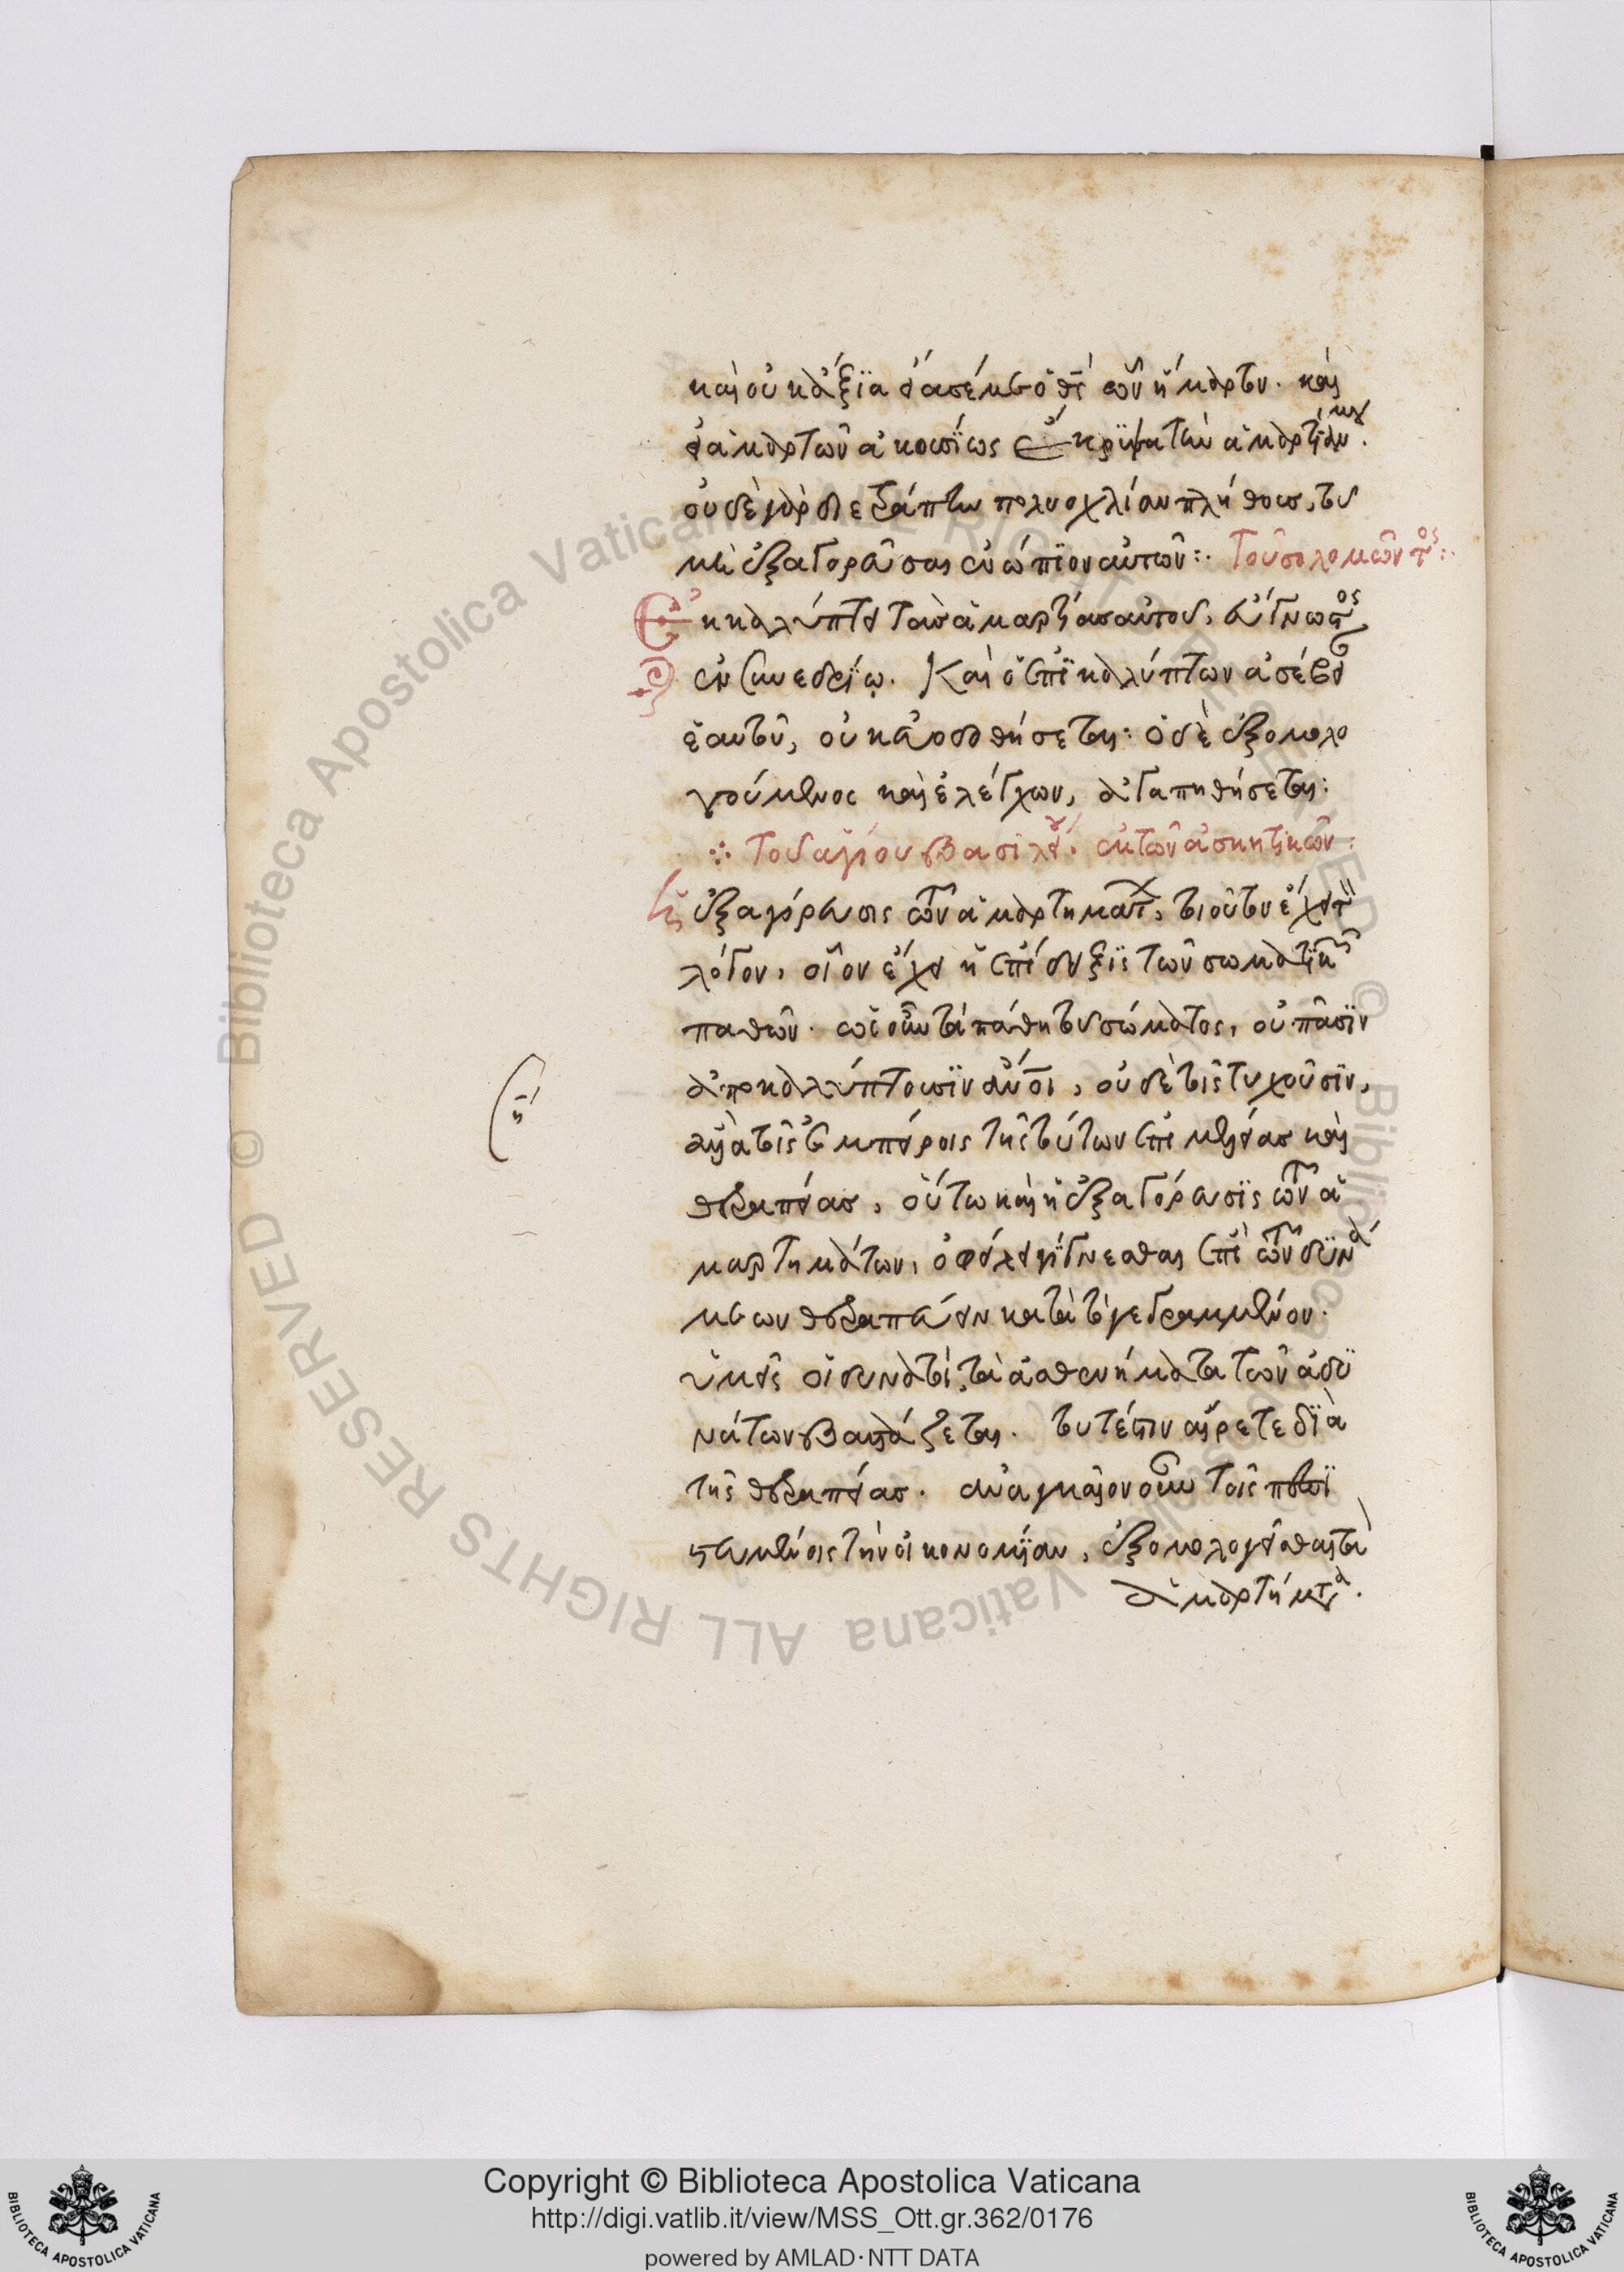 καὶ οὐκ ἄξια ἤτασέ με ὅθεν ὧν ἥμαρτον. καὶ
εἰ ἁμαρτὼν ἀκουσίως ἔκρυψα τὴν ἁμαρτίαν μου.
οὐδὲ γὰρ διετράπην πολυοχλίαν πλήθους, τοῦ
μὴ ἐξαγορεῦσαι ἐνώπιον αὐτῶν: Τοῦ σολομῶντος:
Ἐκκαλύπτει τὰς ἁμαρτίας αὐτοῦ, εὔγνωστος
ἐν συνεδρίῳ. Καὶ ὁ ἐπικαλύπτων ἀσέβει
ἑαυτοῦ, οὐκ εὐοδωθήσεται: ὁ δὲ ἐξομολο
γούμενος καὶ ἐλέγχων, ἀγαπηθήσεται:
Τοῦ ἁγίου βασιλείου ἐκ τῶν ἀσκητικῶν:
Ἡ ἐξαγόρευσις τῶν ἁμαρτημάτων, τοιοῦτον ἔχει τὸν
λόγον, οἷον ἔχει ἡ ἐπίδειξις τῶν σωματικῶν
παθῶν. ὡς οὖν τὰ πάθη τοῦ σώματος, οὐ πᾶσιν
ἀποκαλύπτουσιν ἄνθρωποι, οὐδὲ τοῖς τυχοῦσιν,
ἀλλὰ τοῖς ἐμπείροις τῆς τούτων ἐπιμελείας καὶ
θεραπείας, οὕτω καὶ ἡ ἐξαγόρευσις τῶν ἁ
μαρτημάτων, ὀφείλει γίγνεσθαι ἐπὶ τῶν δυνα
μένων θεραπεύειν κατὰ τὸ γεγραμμένον.
ὑμεῖς οἱ δυνατοὶ, τὰ ἀσθενήματα τῶν ἀδυ
νάτων βαστάζεται. τουτέστιν αἴρετε διὰ
τῆς θεραπείας. ἀναγκαῖον οὖν τοῖς πεπι
στευμένοις τὴν οἰκονομίαν, ἐξομολογεῖσθαι τὰ
ἁμαρτήματα.
Copyright © Biblioteca Apostolica Vaticana
http://digi.vatlib.it/view/MSS_Ott.gr.362/0176
powered by AMLAD·NTT DATA